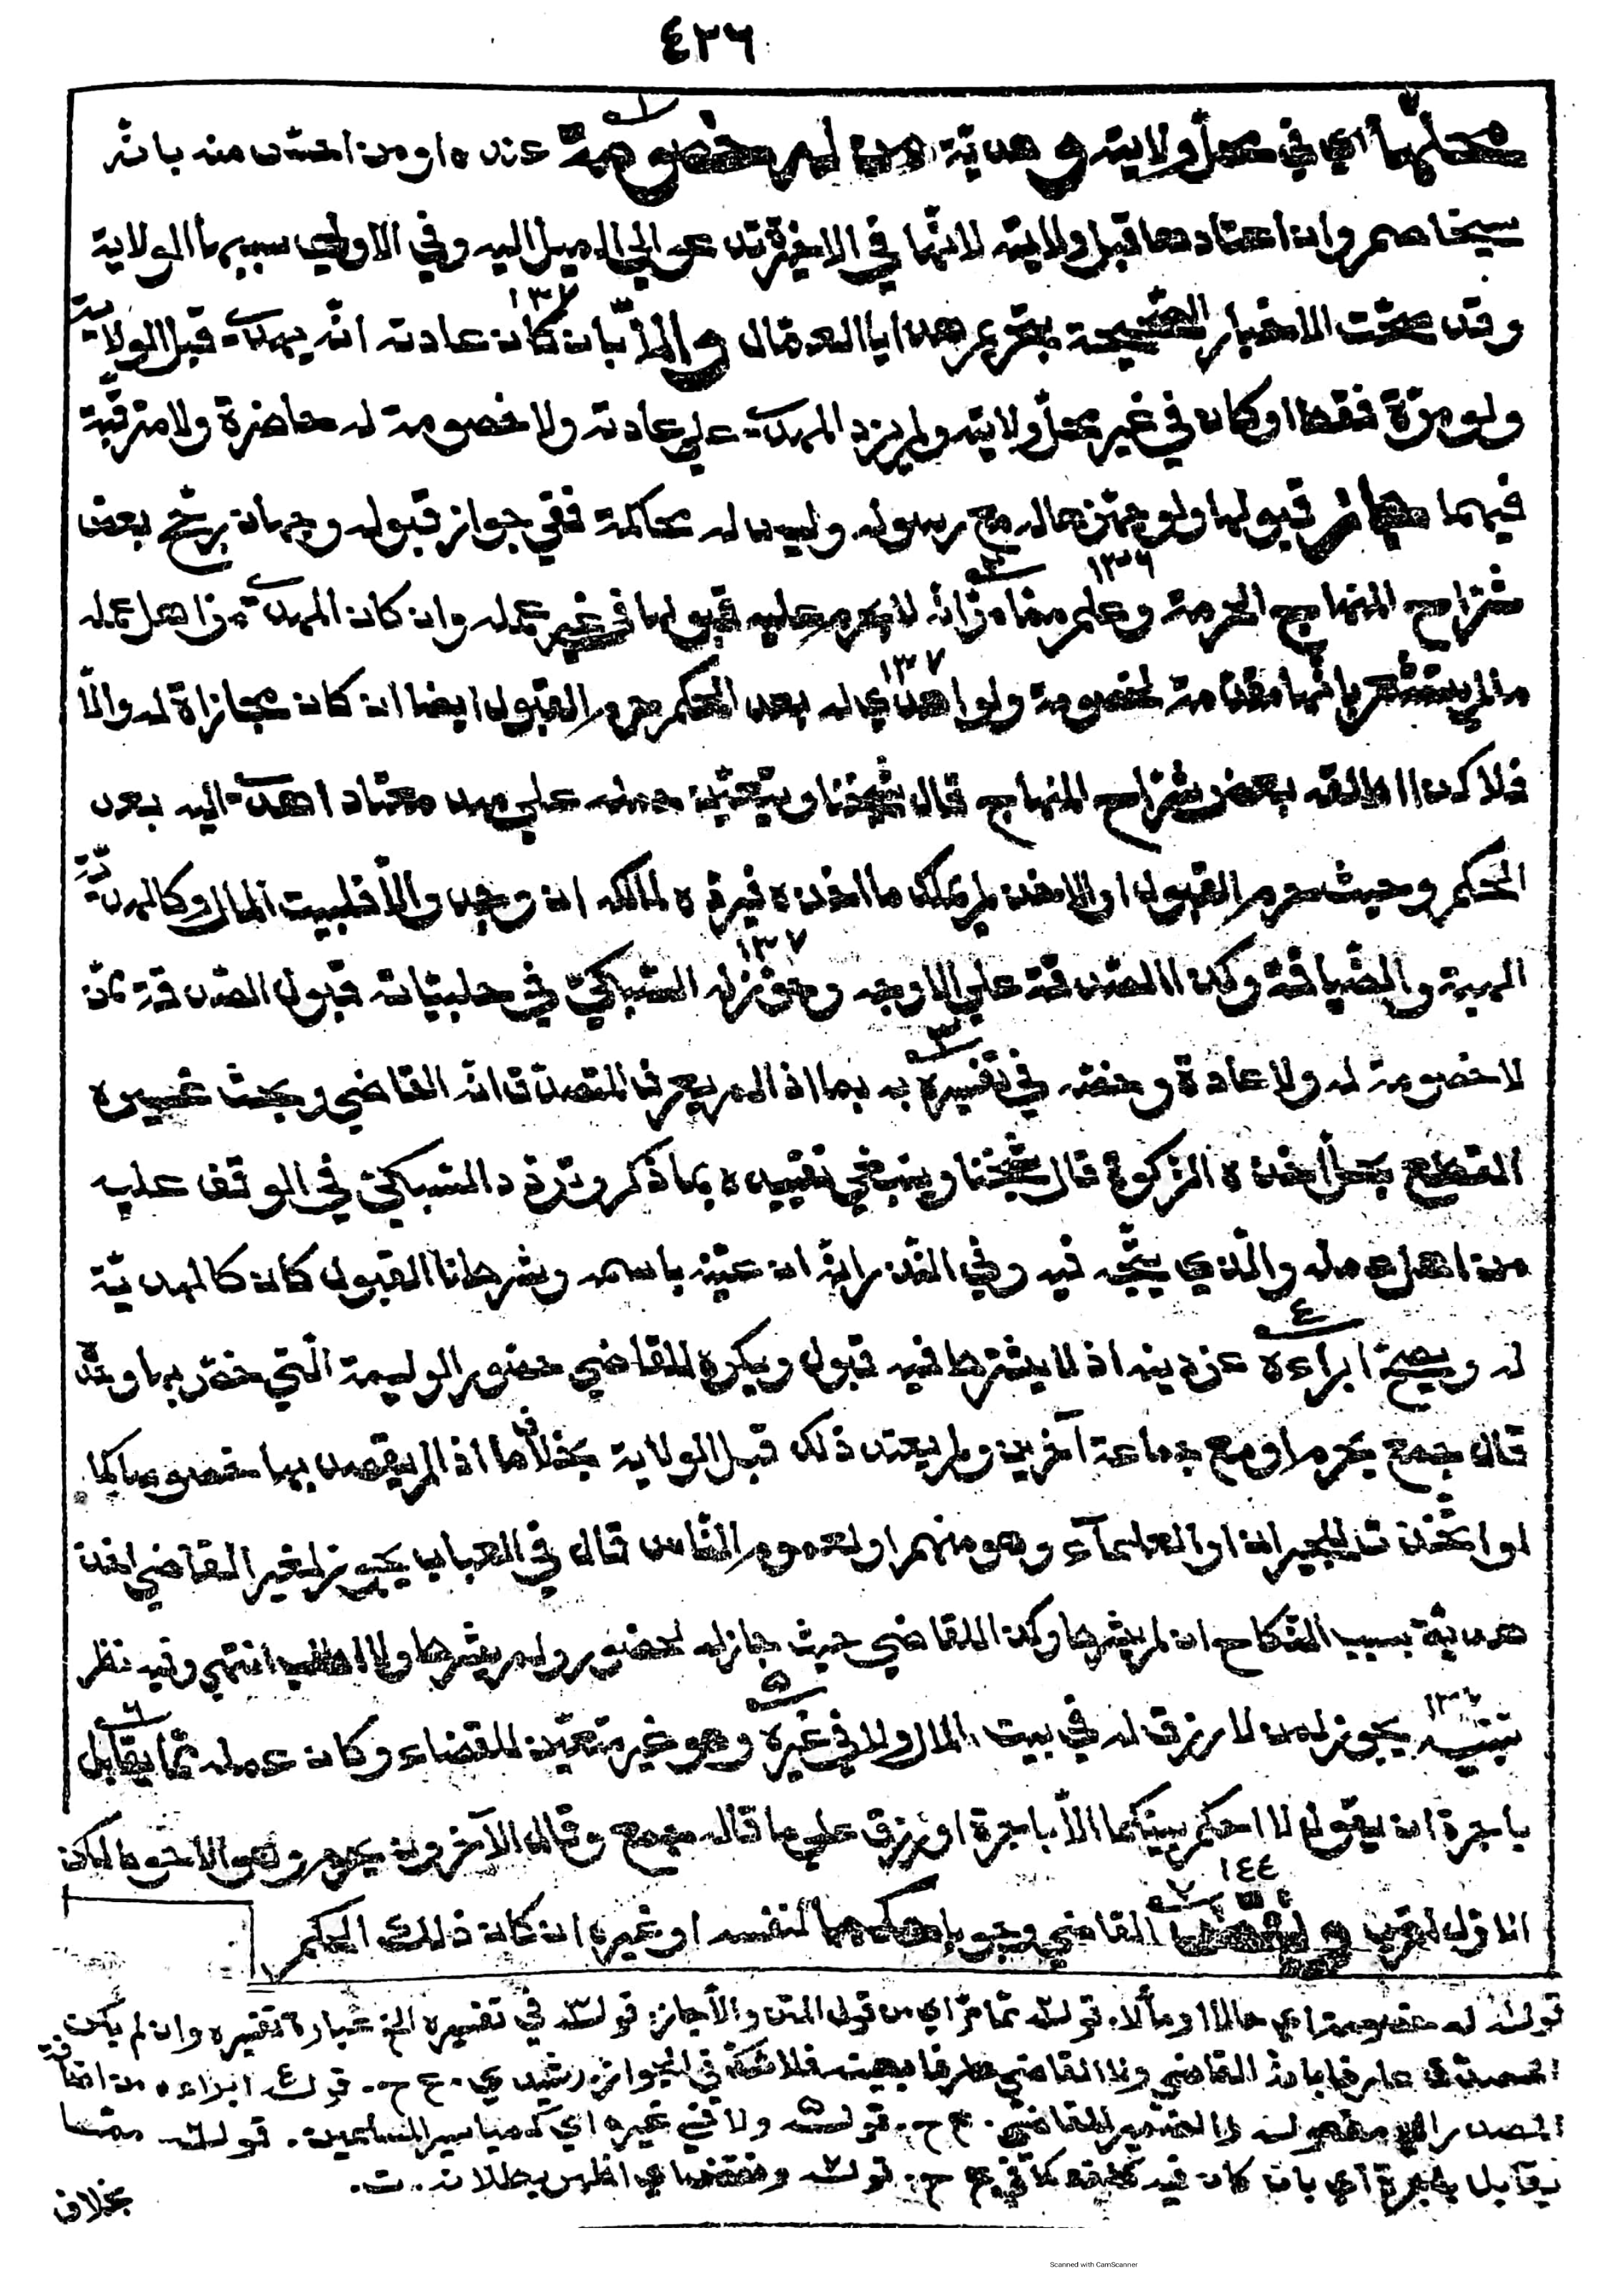 ٤٢٦
محلها اي في محل ولايته وهدية من له خصومة عنده او من احسّ منه بانّه
سيخاصم وان اعتادها قبل ولايته لانّها في الاخيرة تدعو الى الميل اليه وفي الاولى سببها الولاية
وقد صحّت الاخبار الصّحيحة بتحريم هدايا العمّال والّا بان كان عادته انّه يهدى قبل الولاية
ولو مرّة فقط او كان في غير محلّ ولايته ولم يزد المهدى على عادته ولا خصومة له حاضرة ولا مترقّبة
فيهما جاز قبولها ولو جهّزها له مع رسوله وليس له محاكمة ففي جواز قبوله وجهان رجّح بعض
شرّاح المنهاج الحرمة وعلم ممّا مرّ انّه لا يحرم عليه قبولها في غير عمله وان كان المهدى من اهل عمله
ما لم يستشعر بانّها مقدّمة لخصومة ولو اهدى له بعد الحكم حرم القبول ايضا ان كان مجازاة له والّا
فلا كذا اطلقه بعض شرّاح المنهاج قال شيخنا ويتعيّن حمله على مهد معتاد اهدى اليه بعد
الحكم وحيث حرم القبول او الاخذ لم يملك ما اخذه فيردّه لمالكه ان وجد والّا فلبيت المال وكالهديّة
الهبة والضّيافة وكذا الصّدقة على الاوجه وجوّز له السّبكيّ في حلبيّاته قبول الصّدقة ممّن
لا خصومة له ولا عادة وخصّه في تفسيره بما اذا لم يعرف المتصدّق انّه القاضي وبحث غيره
القطع بحلّ اخذه الزكوة قال شيخنا وينبغي تقييده بما ذكر وتردّد السّبكيّ في الوقف عليه
من اهل عمله والّذي يتّجه فيه وفي النّذر انّه ان عيّنه باسمه وشرطنا القبول كان كالهديّة
له ويصحّ ابراءه عن دينه اذ لا يشترط فيه قبول ويكره للقاضي حضور الوليمة الّتي خصّ بها وحده
قال جمع يحرم او مع جماعة آخرين ولم يعتد ذلك قبل الولاية بخلاف ما اذا لم يقصد بها خصوصا كما
لو اتّخذت للجيران او العلمآء وهو منهم او لعموم النّاس قال في العباب يجوز لغير القاضي اخذ
هديّة بسبب النّكاح ان لم يشرط وكذا القاضي حيث جاز له الحضور ولم يشرط ولا طلب انتهى وفيه نظر
تنبيه يجوز لمن لا رزق له في بيت المال ولا في غيره وهو غير متعيّن للقضاء وكان عمله ممّا يقابل
باجرة ان يقول لا احكم بينكما الّا باجرة او رزق على ما قاله جمع وقال الآخرون يحرم وهو الاحوط لكن
الاوّل اقرب ونقض القاضي وجوبا حكما لنفسه او غيره ان كان ذلك الحكم
قولـه له خصومة اي حالا او مآلا. قولـه ممّا مرّ اي من قول المتن والّا جاز. قولـه في تفسيره الخ عبارة تفسيره وان لم يكن
المتصدّق عارفا بانّه القاضي ولا القاضي عارفا بعينه فلا شكّ في الجواز. رشيدي. ع ح. قولـه ابراءه من اضافة
المصدر الى مفعوله والضّمير للقاضي. ع ح. قولـه ولا في غيره اي كمياسير المسلمين. قولـه ممّا
يقابل باجرة اي بان كان فيه كلفة كما في ع ح. قولـه ونقض اي اظهر بطلانه. ت.
بخلاف
Scanned with CamScanner